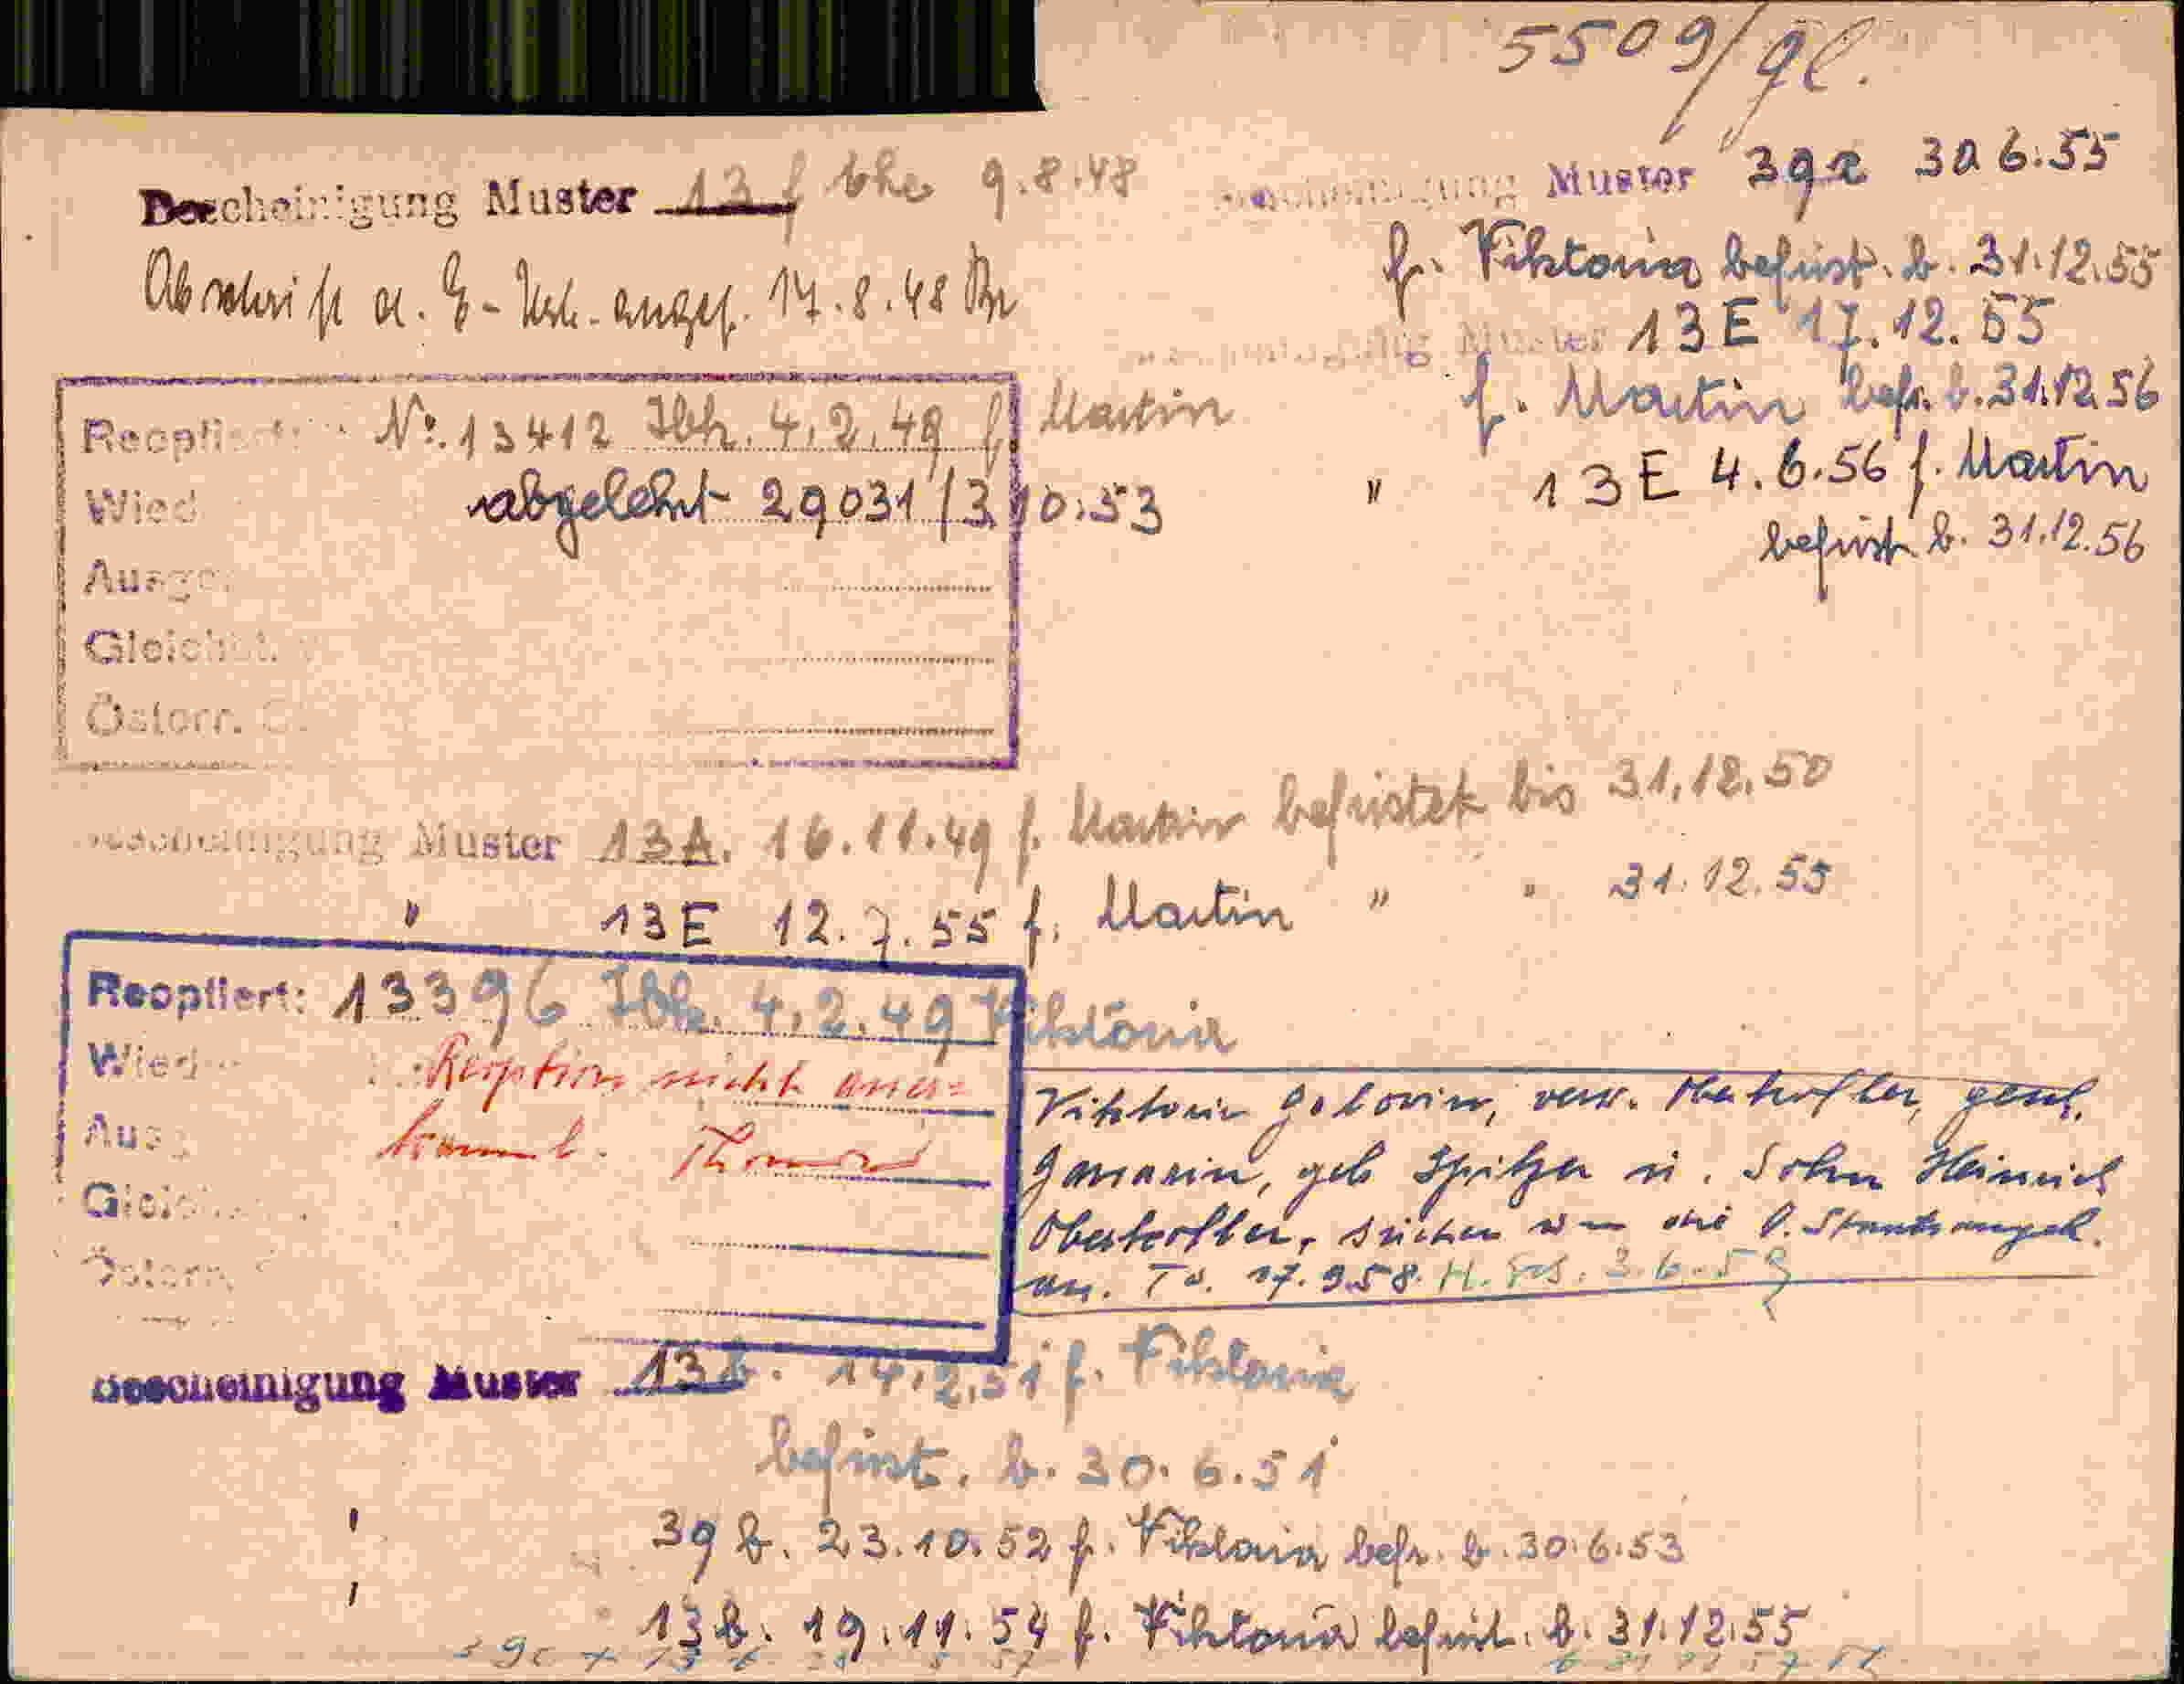 5509/gl.
Bescheinigung Muster 13 f 9.8.48
Abschrift a. E-Urk. angef. 17.8.48
Reoptiert: No. 13412 Ibk. 4.2.49 f. Martin
Wied abgelehnt 29031/3.10.53
Ausge
Gleichst.
Österr.
Bescheinigung Muster 13A. 16.11.49 f. Martin befristet bis 31.12.50
" 13E 12.7.55 f. Martin " " 31.12.55
Reoptiert: 13396 Ibk. 4.2.49 Viktoria
Wied Reoption nicht aner=
Aus kannt.
Gleich
Österr.
Viktoria Golovin, verw. Oberhofler, gesch.
geb Spitzer u. Sohn Heinrich
Oberhofler, suchen um die Staatsangeh.
an. 17.9.58. 3.6.59
Bescheinigung Muster 13b. 14.2.51 f. Viktoria
befrist. b. 30.6.51
" 39 b. 23.10.52 f. Viktoria befr. b. 30.6.53
" 13b. 19.11.54 f. Viktoria befrist. b. 31.12.55
Bescheinigung Muster 39a 30.6.55
f. Viktoria befrist. b. 31.12.55
Bescheinigung Muster 13E 17.12.55
f. Martin befr. b. 31.12.56
" 13E 4.6.56 f. Martin
befrist b. 31.12.56